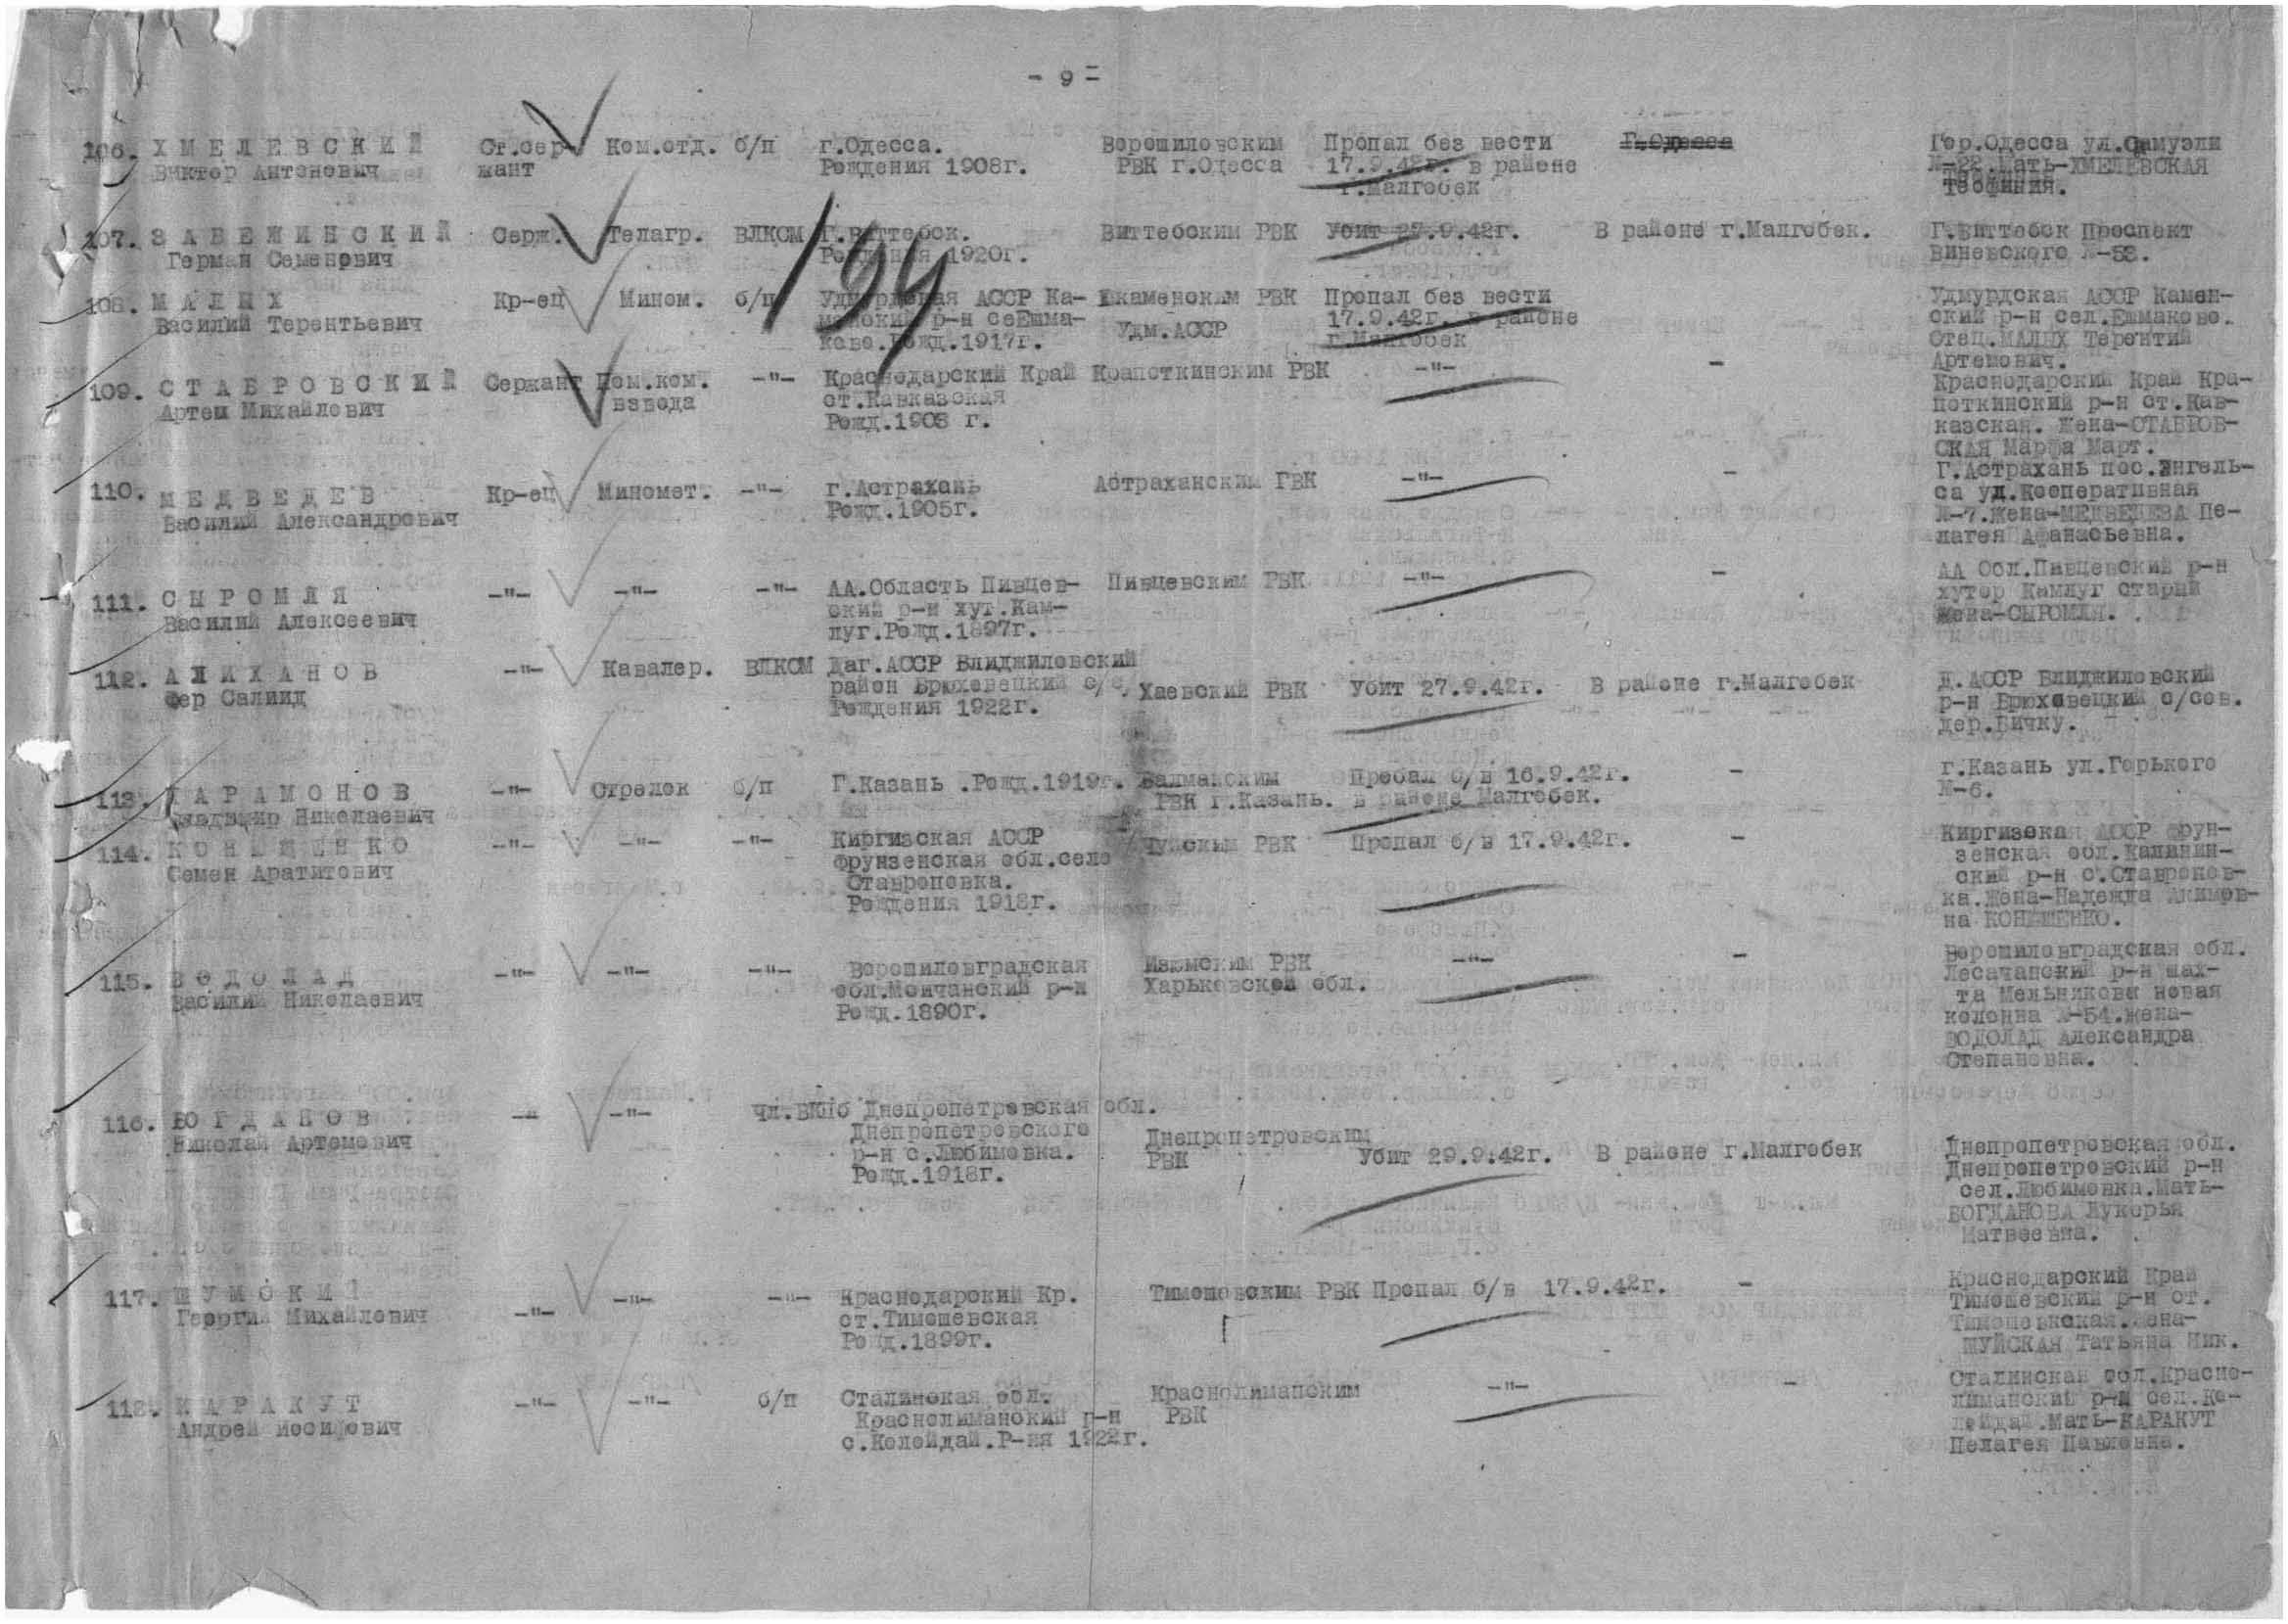 - 9 -
106. ХМЕЛЕВСКИЙ Ст.сер- Ком.отд. б/п г.Одесса. Ворошиловским Пропал без вести Г.Одесса Гор.Одесса ул.Самуэли
Виктор Антонович жант Рождения 1908г. РВК г.Одесса 17.9.42г. в районе №-22.Мать-ХМЕЛЕВСКАЯ
г.Малгобек Теофиния.
194
107. ЗАБЕЖИНСКИЙ Серж. Телагр. ВЛКСМ Г.Виттебск. Виттебским РВК Убит 27.9.42г. В районе г.Малгобек. Г.Виттебск Проспект
Герман Семенович Рождения 1920г. Виневского №-53.
108. МАЛЫХ Кр-ец Мином. б/п Удмурдская АССР Ка- Шкаменским РВК Пропал без вести Удмурдская АССР Камен-
Василий Терентьевич менский р-н селЕшма- Удм.АССР 17.9.42г. в районе ский р-н сел.Ешмаково.
ково.Рожд.1917г. г.Малгобек Отец.МАЛЫХ Терентий
Артемович.
109. СТАВРОВСКИЙ Сержант Пом.ком. -"- Краснодарский Край Крапоткинским РВК -"- - Краснодарский Край Кра-
Артем Михайлович взвода ст.Кавказская поткинский р-н ст.Кав-
Рожд.1903 г. казская. Жена-СТАВРОВ-
СКАЯ Марфа Март.
110. МЕДВЕДЕВ Кр-ец Миномет. -"- г.Астрахань Астраханским ГВК -"- - Г.Астрахань пос.Энгель-
Василий Александрович Рожд.1905г. са ул.Кооперативная
№-7.Жена-МЕДВЕДЕВА Пе-
лагея Афанасьевна.
111. СЫРОМЛЯ -"- -"- -"- АА.Область Пивцев- Пивцевским РВК -"- - АА Обл.Пивцевский р-н
Василий Алексеевич ский р-н хут.Кам- хутор Камлуг старый
луг.Рожд.1897г. Жена-СЫРОМЛЯ.
112. АЛИХАНОВ -"- Кавалер. ВЛКСМ Даг.АССР Влиджиловский Д.АССР Влиджиловский
Фер Салиид район Брюховецкий с/с, Хаевский РВК Убит 27.9.42г. В районе г.Малгобек р-н Брюховецкий с/сов.
Рождения 1922г. дер.Бичку.
113. ПАРАМОНОВ -"- Стрелок б/п Г.Казань .Рожд.1919г. Валманским Пропал б/в 16.9.42г. - г.Казань ул.Горького
Владимир Николаевич РВК г.Казань. в районе Малгобек. №-6.
114. КОНЕЩЕНКО -"- -"- -"- Киргизская АССР Чуйским РВК Пропал б/в 17.9.42г. - Киргизская АССР Фрун-
Семен Аратитович Фрунзенская обл.село зенская обл.Калинин-
Ставроповка. ский р-н с.Ставропов-
Рождения 1918г. ка.Жена-Надежда Акимов-
на КОНЕЩЕНКО.
115. ВОДОЛАД -"- -"- -"- Ворошиловградская Изюмским РВК -"- - Ворошиловградская обл.
Василий Николаевич обл.Мойчанский р-н Харьковской обл. Лесачанский р-н шах-
Рожд.1890г. та Мельникова новая
колонна №-54.Жена-
ВОДОЛАД Александра
Степановна.
116. БОГДАНОВ -"- -"- чл.ВКПб Днепропетровская обл.
Николай Артемович Днепропетровского Днепропетровским Днепропетровская обл.
р-н с.Любимовка. РВК Убит 29.9.42г. В районе г.Малгобек Днепропетровский р-н
Рожд.1918г. сел.Любимовка.Мать-
БОГДАНОВА Лукерья
Матвеевна.
117. ШУМСКИЙ -"- -"- -"- Краснодарский Кр. Тимошевским РВК Пропал б/в 17.9.42г. - Краснодарский Край
Георгий Михайлович ст.Тимошевская Тимошевский р-н ст.
Рожд.1899г. Тимошевкская.Жена-
ШУЙСКАЯ Татьяна Ник.
118. КАРАКУТ -"- -"- б/п Сталинская обл. Краснолиманским -"- - Сталинская обл.Красно-
Андрей Иосифович Краснолиманский р-н РВК лиманский р-н сел.Ко-
с.Колейдай.Р-ия 1922г. лейдай.Мать-КАРАКУТ
Пелагея Павловна.